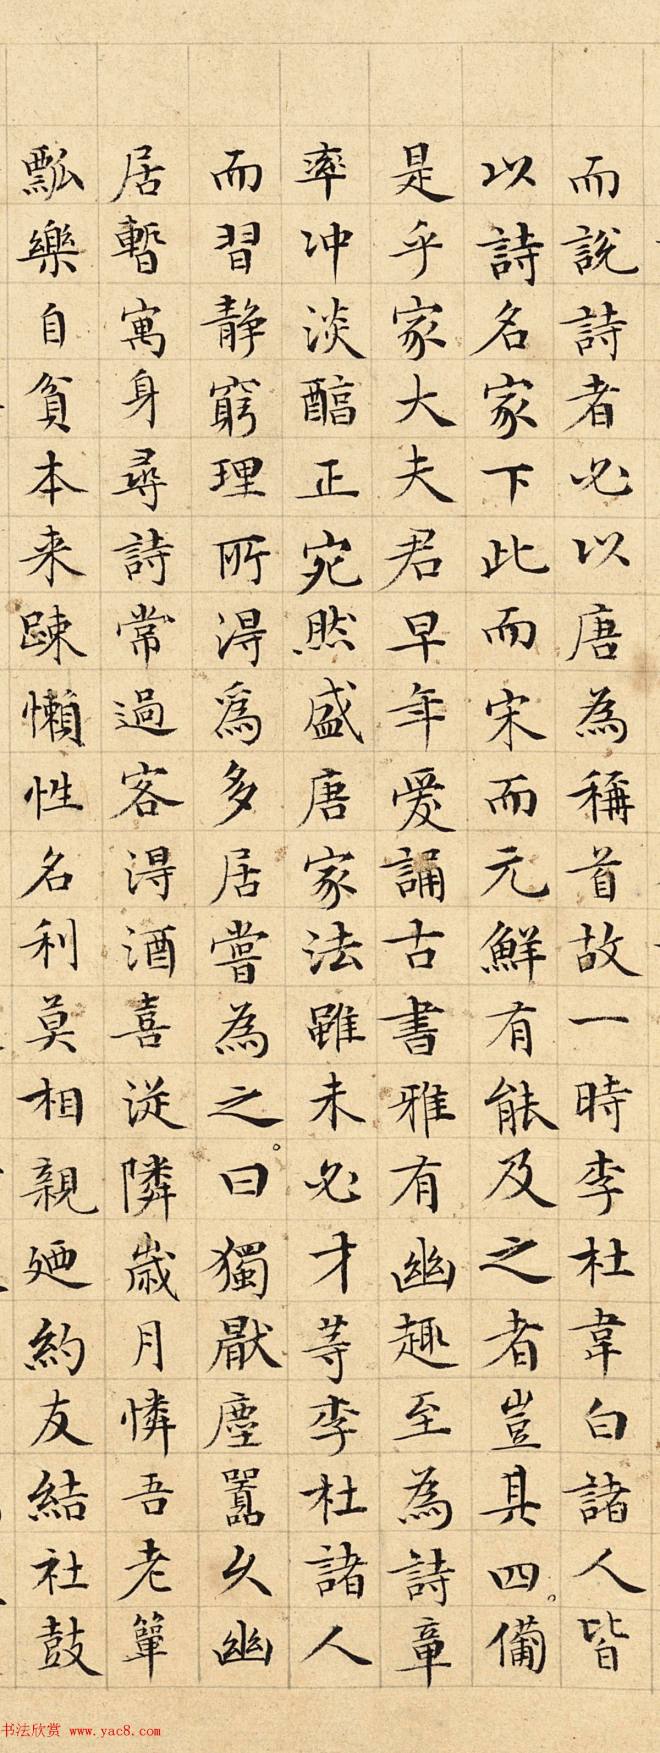 而說詩者必以唐為稱首故一時李杜韋白諸人皆
以詩名家下此而宋而元鮮有能及之者豈其四。備
是乎家大夫君早年爱誦古書雅有幽趣至為詩章
率冲淡醕正宛然盛唐家法雖未必才等李杜諸人
而習静窮理所淂爲多居嘗為之。曰獨厭塵嚣久幽
居暫寓身尋詩常過客淂酒喜従隣歲月憐吾老簞
瓢樂自貧本来踈懶性名利莫相親廼約友結社鼓
书法欣赏 www.yac8.com